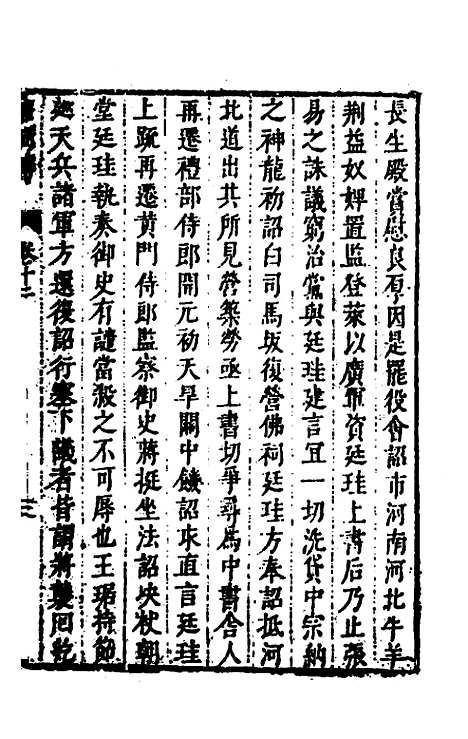 長生殿賞慰良厚因是罷役會詔市河南河北牛羊
荆益奴婢置監登萊以廣軍資廷珪上書后乃止張
易之誅議窮治黨與廷珪建言宜一切洗貸中宗納
之神龍初詔白司馬坂復營佛祠廷珪方奉詔抵河
北道出其所見營築勞亟上書切爭尋爲中書舍人
再遷禮部侍郎開元初天旱關中饑詔求直言廷珪
上疏再遷黄門侍郎監察御史蔣挺坐法詔决杖朝
堂廷珪執奏御史有譴當殺之不可辱也王琚持節
廵天兵諸軍方還復詔行塞下議者皆謂將襲囘紇
卷十二